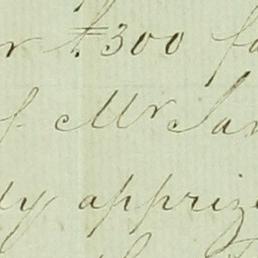 r $300 fo
f. Mr Sam
ly apprize